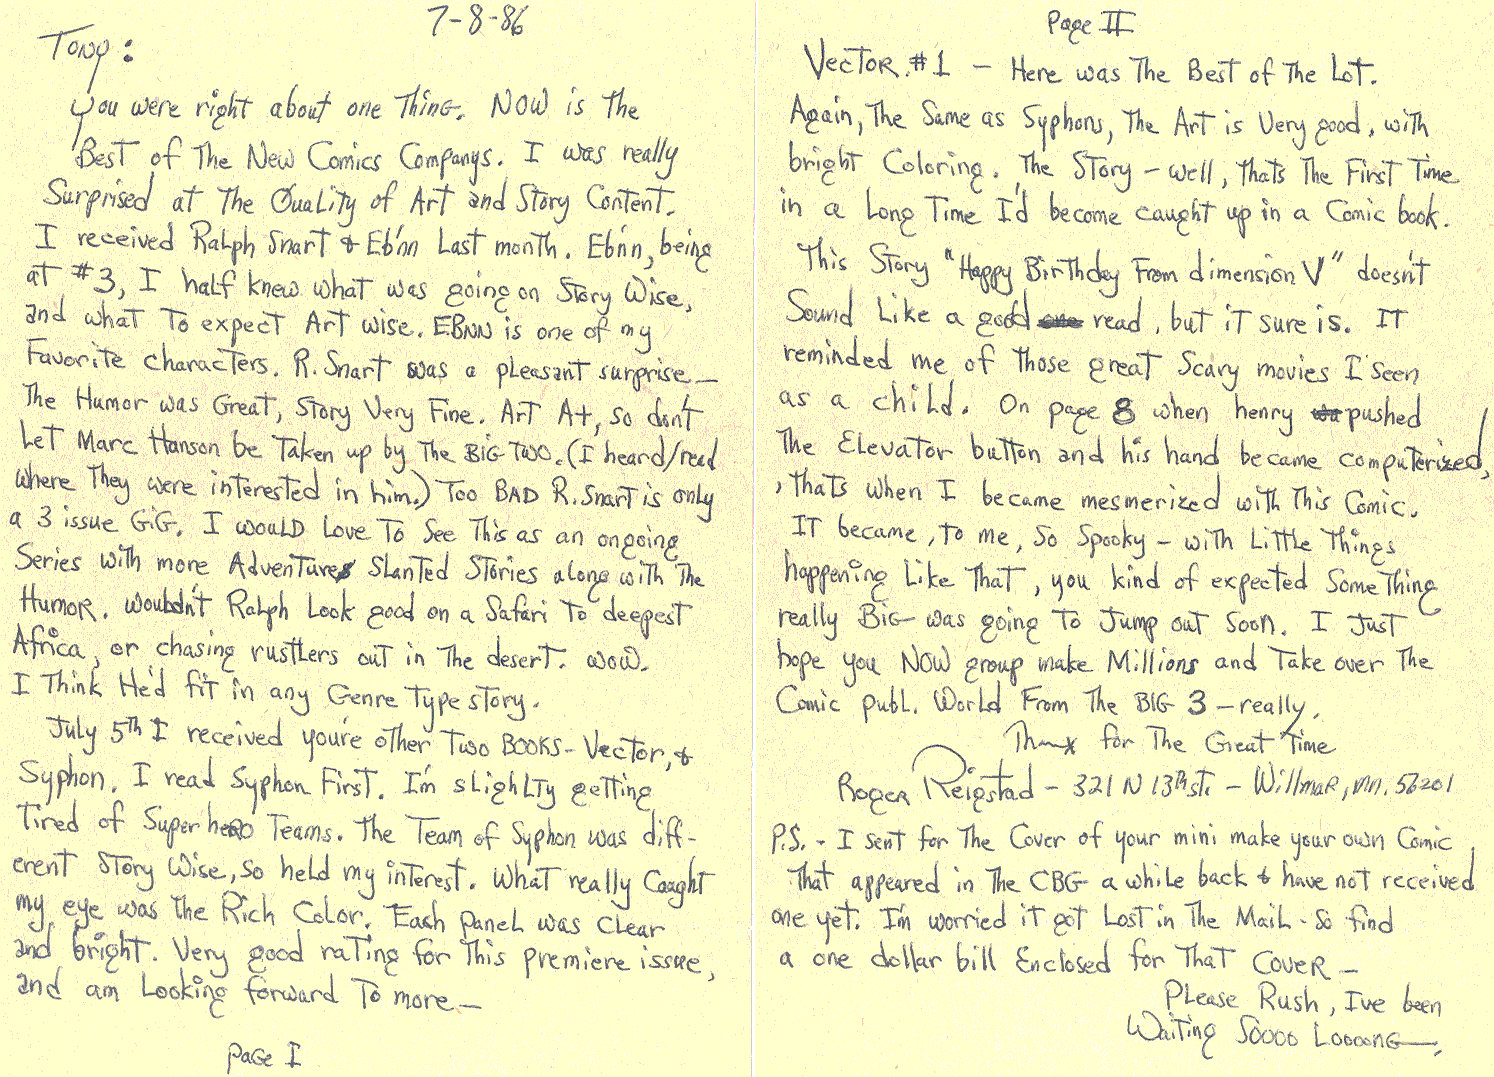 7-8-86
Tony:
You were right about one Thing. NOW is The
Best of The New Comics Companys. I was really
Surprised at The Quality of Art and Story Content.
I received Ralph Snart & Eb'nn Last month. Eb'nn, being
at #3, I half knew what was going on Story Wise,
and what To expect Art wise. EBNN is one of my
Favorite characters. R. Snart was a pleasant surprise—
The Humor was Great, Story Very Fine. Art A+, so don't
Let Marc Hanson be Taken up by The BIG TWO. (I heard/read
where They were interested in him.) Too BAD R. Snart is only
a 3 issue GIG. I would Love To See This as an ongoing
Series with more Adventure Slanted Stories along with The
Humor. Wouldn't Ralph Look good on a Safari To deepest
Africa, or chasing rustlers out in The desert. wow.
I Think He'd fit in any Genre Type story.
July 5th I received you're other Two BOOKS - Vector, &
Syphon. I read Syphon First. I'm slighlty getting
Tired of Superhero Teams. The Team of Syphon was diff-
erent Story Wise, so held my interest. What really Caught
my eye was The Rich Color. Each panel was clear
and bright. Very good rating for This premiere issue,
and am Looking forward To more—
page I
Page II
Vector #1 — Here was The Best of The Lot.
Again, The Same as Syphons, The Art is Very good, with
bright Coloring. The Story — well, thats The First Time
in a Long Time I'd become caught up in a Comic book.
This Story "Happy Birthday From dimension V" doesn't
Sound Like a good read, but it sure is. IT
reminded me of Those great Scary movies I seen
as a child. On page 8 when henry pushed
The Elevator button and his hand became computerized,
, thats when I became mesmerized with This Comic.
IT became, to me, So Spooky — with Little Things
happening Like That, you kind of expected Some Thing
really BIG was going To Jump out Soon. I Just
hope you NOW group make Millions and Take over The
Comic publ. World From The BIG 3 — really.
Thanx for The Great Time
Roger Reigstad - 321 N 13th St. - Willmar, Mn. 56201
P.S. - I sent for The Cover of your mini make your own Comic
That appeared in The CBG a while back & have not received
one yet. I'm worried it got Lost in The Mail - So find
a one dollar bill Enclosed for That COVER —
Please Rush, I've been
Waiting Soooo Loooong—.